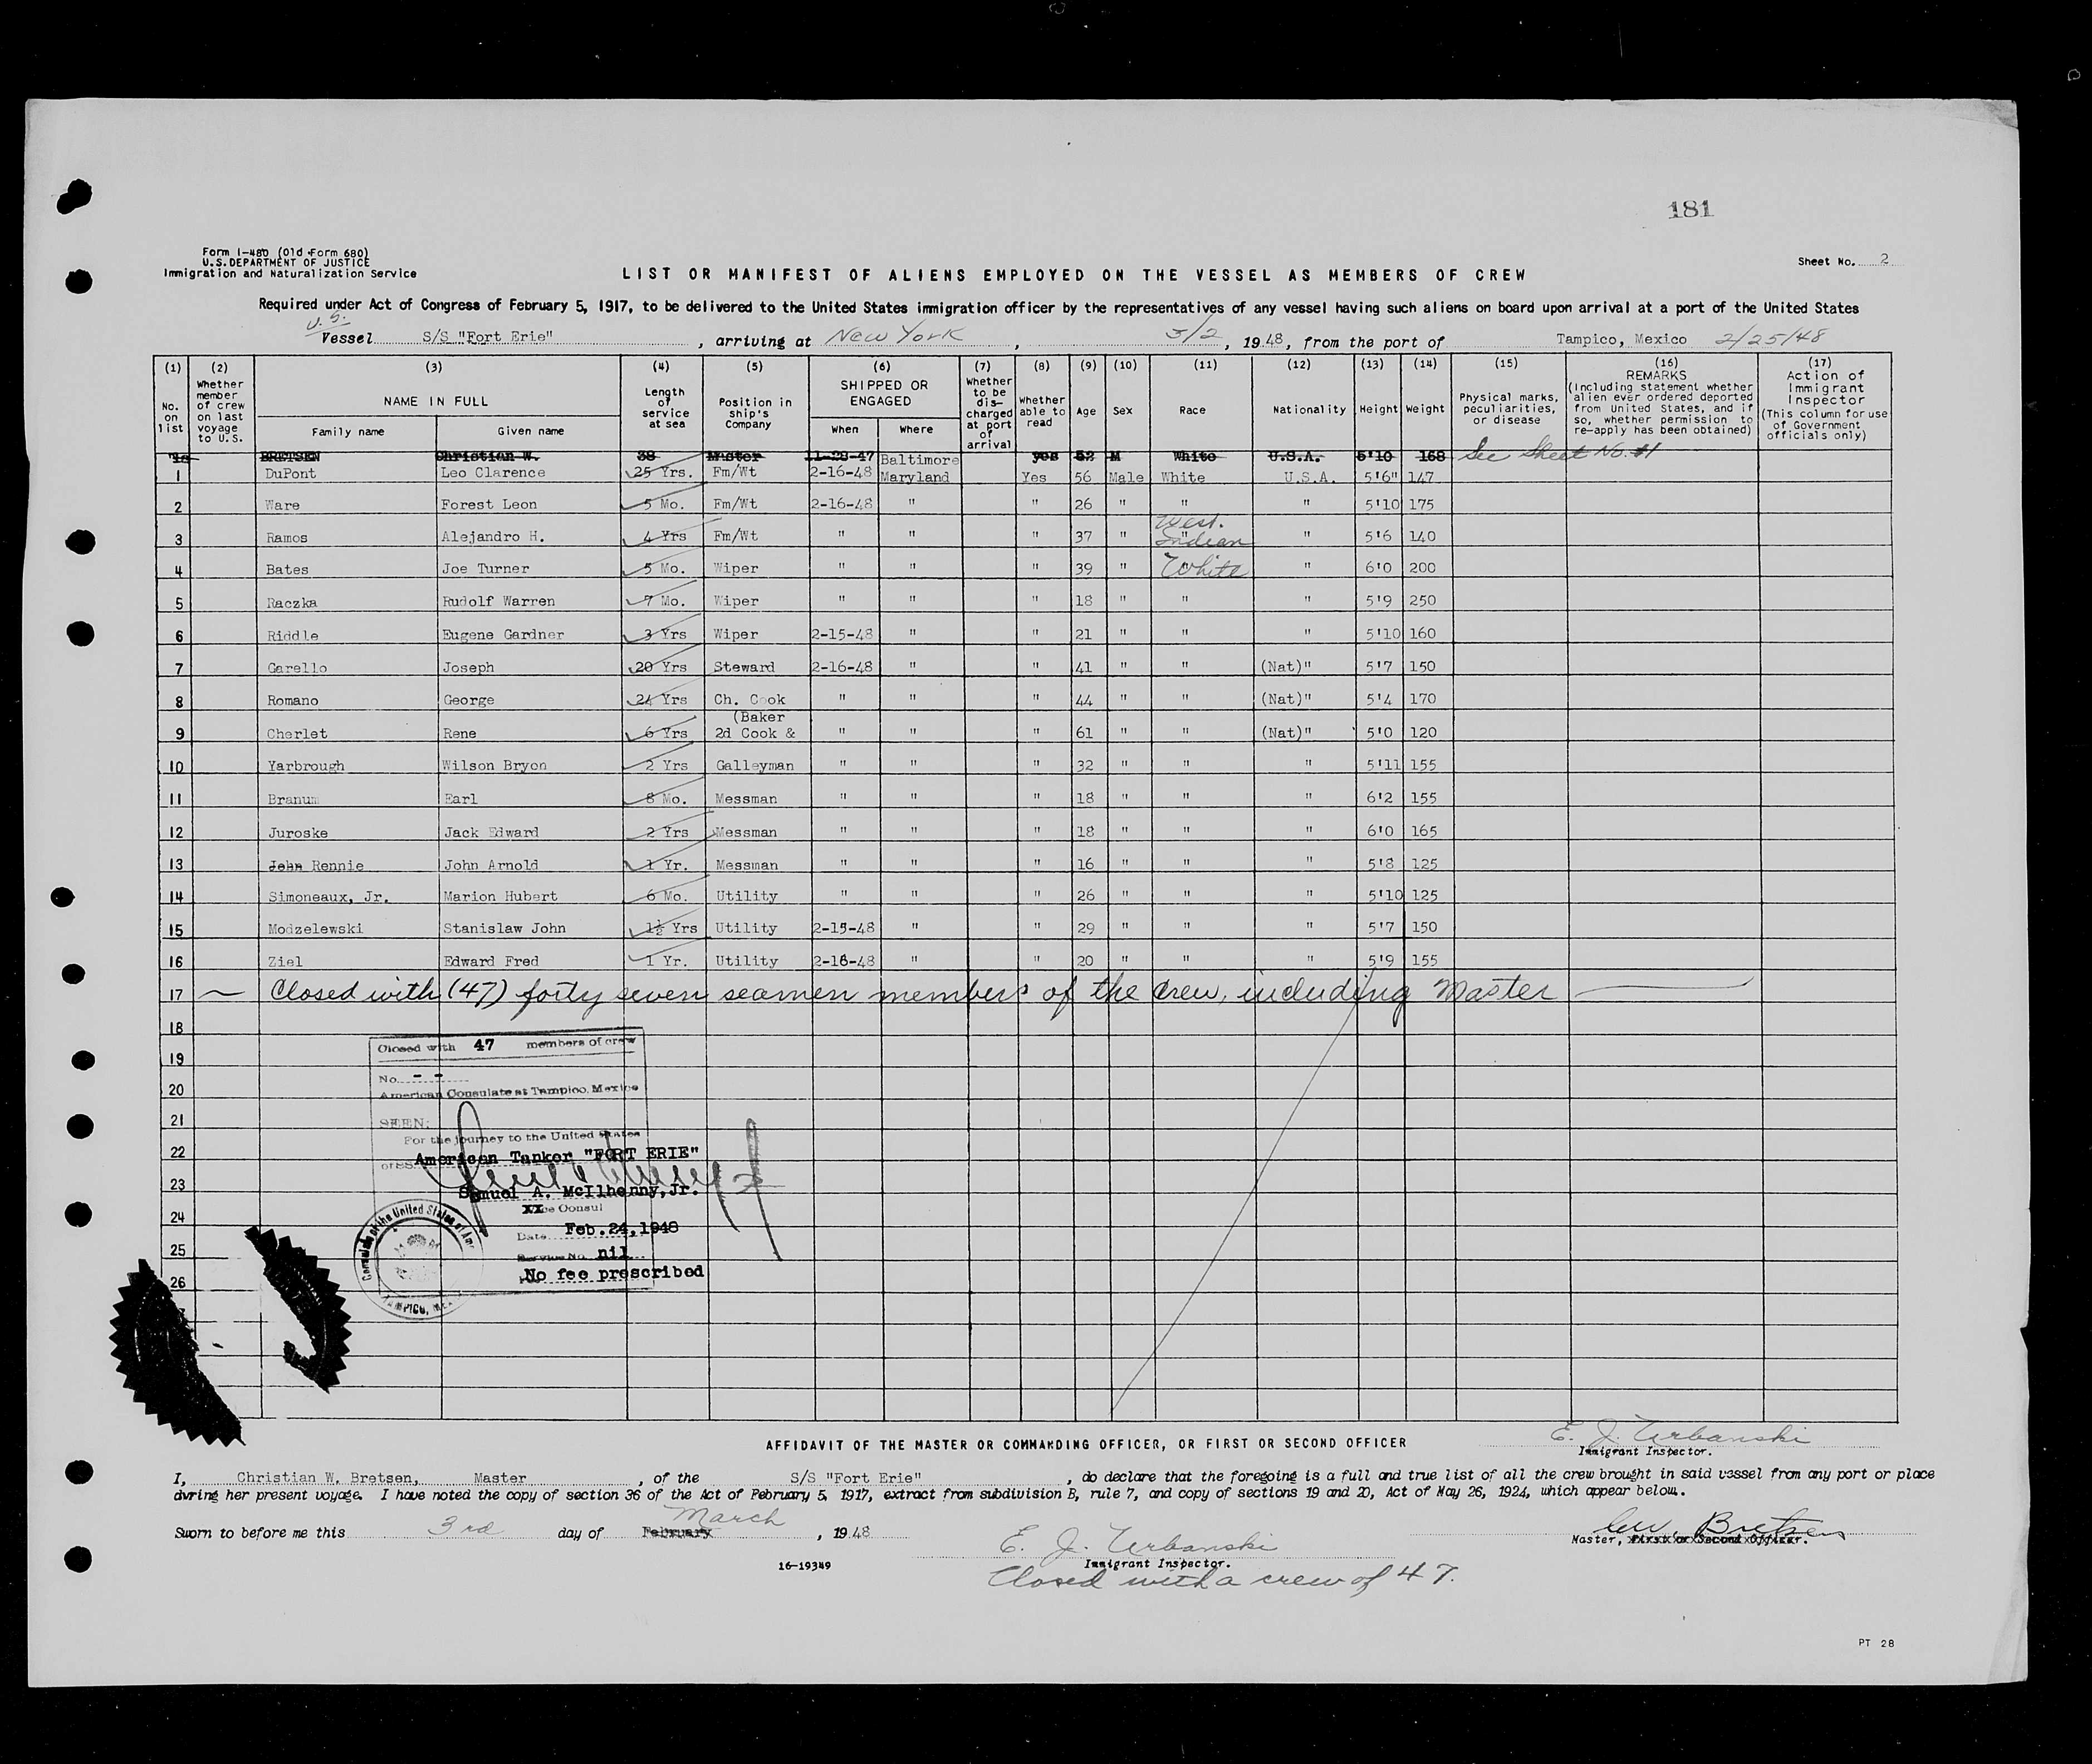 181
Form I-480 (Old Form 680)
U.S. DEPARTMENT OF JUSTICE
Immigration and Naturalization Service
LIST OR MANIFEST OF ALIENS EMPLOYED ON THE VESSEL AS MEMBERS OF CREW
Sheet No. 2
Required under Act of Congress of February 5, 1917, to be delivered to the United States immigration officer by the representatives of any vessel having such aliens on board upon arrival at a port of the United States
U.S.
Vessel S/S "Fort Erie", arriving at New York, 3/2, 1948, from the port of Tampico, Mexico 2/25/48
(1) No. on list
(2) Whether member of crew on last voyage to U.S.
(3) NAME IN FULL Family name Given name
(4) Length of service at sea
(5) Position in ship's Company
(6) SHIPPED OR ENGAGED When Where
(7) Whether to be discharged at port of arrival
(8) Whether able to read
(9) Age
(10) Sex
(11) Race
(12) Nationality
(13) Height
(14) Weight
(15) Physical marks, peculiarities, or disease
(16) REMARKS (Including statement whether alien ever ordered deported from United States, and if so, whether permission to re-apply has been obtained)
(17) Action of Immigrant Inspector (This column for use of Government officials only)
BRETSEN Christian W. 38 Master 11-28-47 Baltimore yes 52 M White U.S.A. 5'10 168 See Sheet No. #1
1 DuPont Leo Clarence 25 Yrs. Fm/Wt 2-16-48 Maryland Yes 56 Male White U.S.A. 5'6" 147
2 Ware Forest Leon 5 Mo. Fm/Wt 2-16-48 " " 26 " " " 5'10 175
3 Ramos Alejandro H. 4 Yrs Fm/Wt " " " 37 " West. Indian " 5'6 140
4 Bates Joe Turner 5 Mo. Wiper " " " 39 " White " 6'0 200
5 Raczka Rudolf Warren 7 Mo. Wiper " " " 18 " " " 5'9 250
6 Riddle Eugene Gardner 3 Yrs Wiper 2-15-48 " " 21 " " " 5'10 160
7 Garello Joseph 20 Yrs Steward 2-16-48 " " 41 " " (Nat)" 5'7 150
8 Romano George 24 Yrs Ch. Cook " " " 44 " " (Nat)" 5'4 170
(Baker
9 Cherlet Rene 6 Yrs 2d Cook & " " " 61 " " (Nat)" 5'0 120
10 Yarbrough Wilson Bryon 2 Yrs Galleyman " " " 32 " " " 5'11 155
11 Branum Earl 8 Mo. Messman " " " 18 " " " 6'2 155
12 Juroske Jack Edward 2 Yrs Messman " " " 18 " " " 6'0 165
13 John Rennie John Arnold 1 Yr. Messman " " " 16 " " " 5'8 125
14 Simoneaux, Jr. Marion Hubert 6 Mo. Utility " " " 26 " " " 5'10 125
15 Modzelewski Stanislaw John 1½ Yrs Utility 2-15-48 " " 29 " " " 5'7 150
16 Ziel Edward Fred 1 Yr. Utility 2-16-48 " " 20 " " " 5'9 155
17 Closed with (47) forty seven seamen members of the crew, including Master
18
19
20
21
22
23
24
25
26
Closed with 47 members of crew
No. - -
American Consulate at Tampico, Mexico
SEEN:
For the journey to the United States
of SS. American Tanker "FORT ERIE"
Samuel A. McIlhenny, Jr.
XXce Consul
Date Feb. 24, 1948
Service No. nil
No fee prescribed
AFFIDAVIT OF THE MASTER OR COMMANDING OFFICER, OR FIRST OR SECOND OFFICER
E. J. Urbanski
Immigrant Inspector.
I, Christian W. Bretsen, Master, of the S/S "Fort Erie", do declare that the foregoing is a full and true list of all the crew brought in said vessel from any port or place
during her present voyage. I have noted the copy of section 36 of the Act of February 5, 1917, extract from subdivision B, rule 7, and copy of sections 19 and 20, Act of May 26, 1924, which appear below.
Sworn to before me this 3rd day of February March, 1948
C.W. Bretsen
Master, First or Second Officer.
E. J. Urbanski
16-19349
Immigrant Inspector.
Closed with a crew of 47.
PT 28